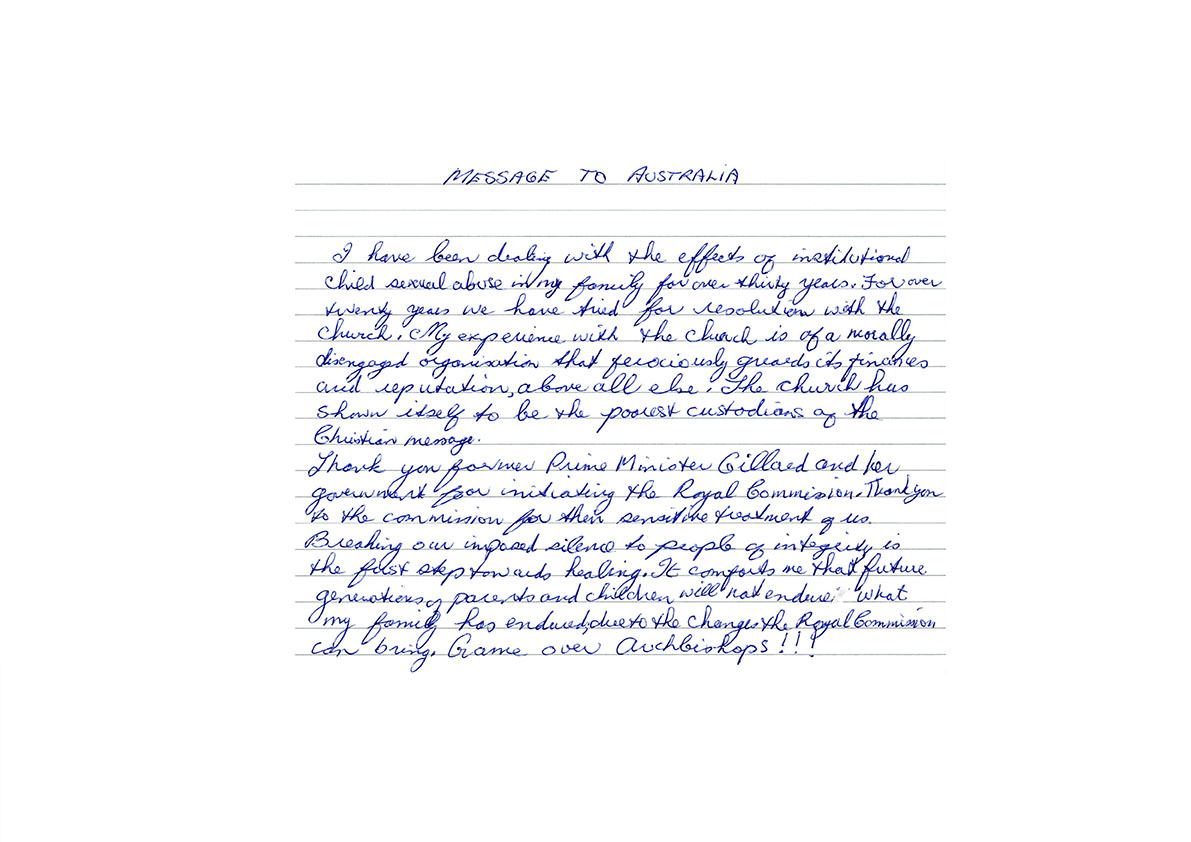 MESSAGE TO AUSTRALIA
I have been dealing with the effects of institutional
child sexual abuse in my family for over thirty years. For over
twenty years we have tried for resolution with the
church. My experience with the church is of a morally
disengaged organisation that ferociously guards its finances
and reputation, above all else. The church has
shown itself to be the poorest custodians of the
Christian message.
Thank you former Prime Minister Gillard and her
government for initiating the Royal Commission. Thank you
to the commission for their sensitive treatment of us.
Breaking our imposed silence to people of integrity is
the first step towards healing. It comforts me that future
generations of parents and children will not endure what
my family has endured, due to the changes the Royal Commission
can bring. Game over Archbishops!!!